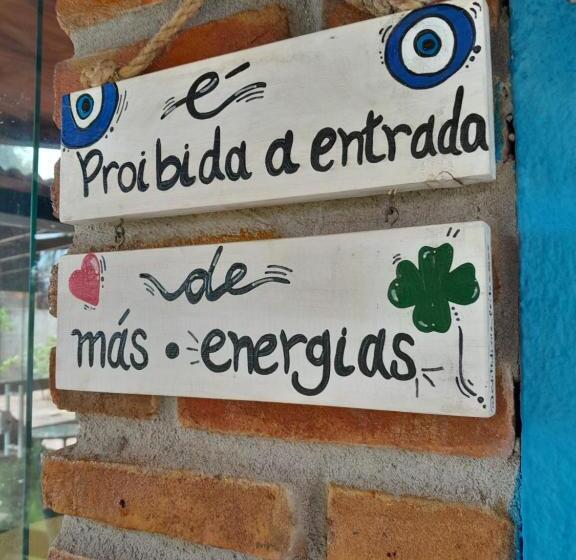 é
Proibida a entrada
de
más • energias